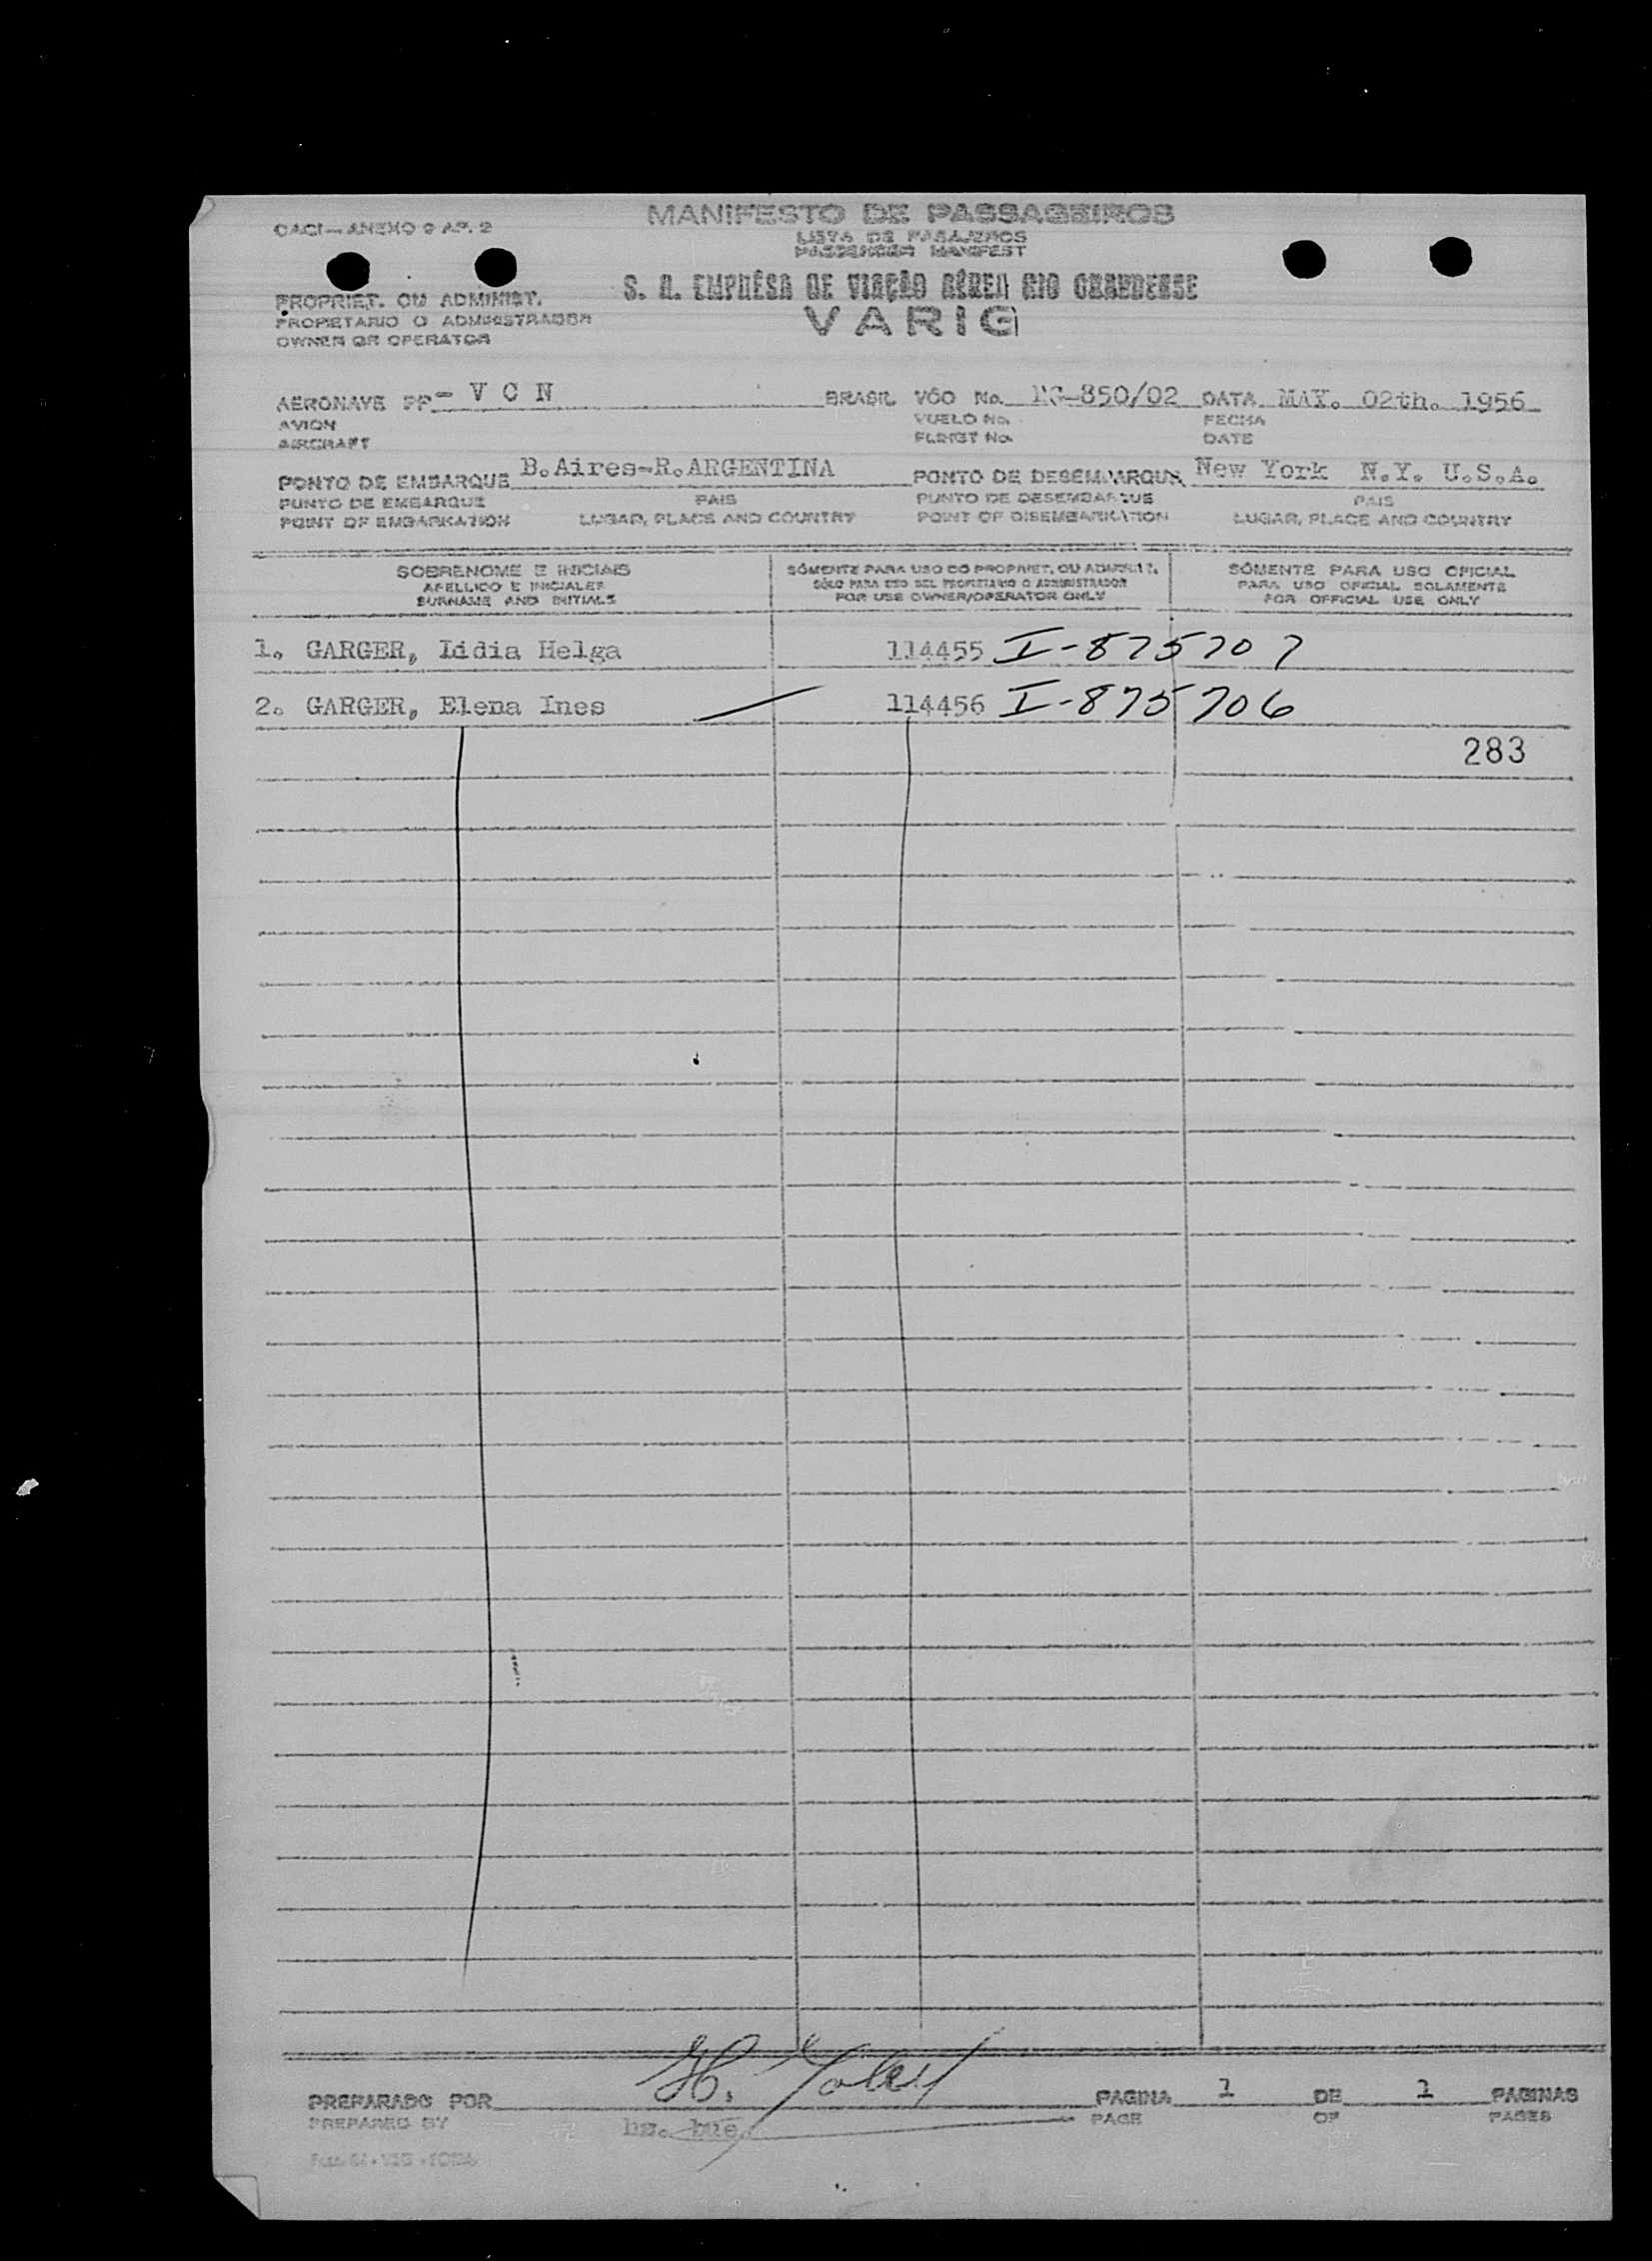 MANIFESTO DE PASSAGEIROS
OACI — ANEXO 9 AP. 2
LISTA DE PASAJEROS
PASSENGER MANIFEST
S. A. EMPRÊSA DE VIAÇÃO AÉREA RIO GRANDENSE
PROPRIET. OU ADMINIST.
PROPIETARIO O ADMINISTRADOR
VARIG
OWNER OR OPERATOR
AERONAVE PP - V C N BRASIL VÔO No. RG-850/02 DATA MAY. 02th. 1956
AVION VUELO No. FECHA
AIRCRAFT FLIGHT No. DATE
PONTO DE EMBARQUE B.Aires-R.ARGENTINA PONTO DE DESEMBARQUE New York N.Y. U.S.A.
PUNTO DE EMBARQUE PAIS PUNTO DE DESEMBARQUE PAIS
POINT OF EMBARKATION LUGAR, PLACE AND COUNTRY POINT OF DISEMBARKATION LUGAR, PLACE AND COUNTRY
SOBRENOME E INICIAIS SÓMENTE PARA USO DO PROPRIET. OU ADMINIST. SÓMENTE PARA USO OFICIAL
APELLIDO E INICIALES SÓLO PARA USO DEL PROPIETARIO O ADMINISTRADOR PARA USO OFICIAL SOLAMENTE
SURNAME AND INITIALS FOR USE OWNER/OPERATOR ONLY FOR OFFICIAL USE ONLY
1. GARGER, Lidia Helga 114455 I-875707
2. GARGER, Elena Ines 114456 I-875706
283
PREPARADO POR H. PAGINA 1 DE 1 PAGINAS
PREPARED BY bue. PAGE OF PAGES